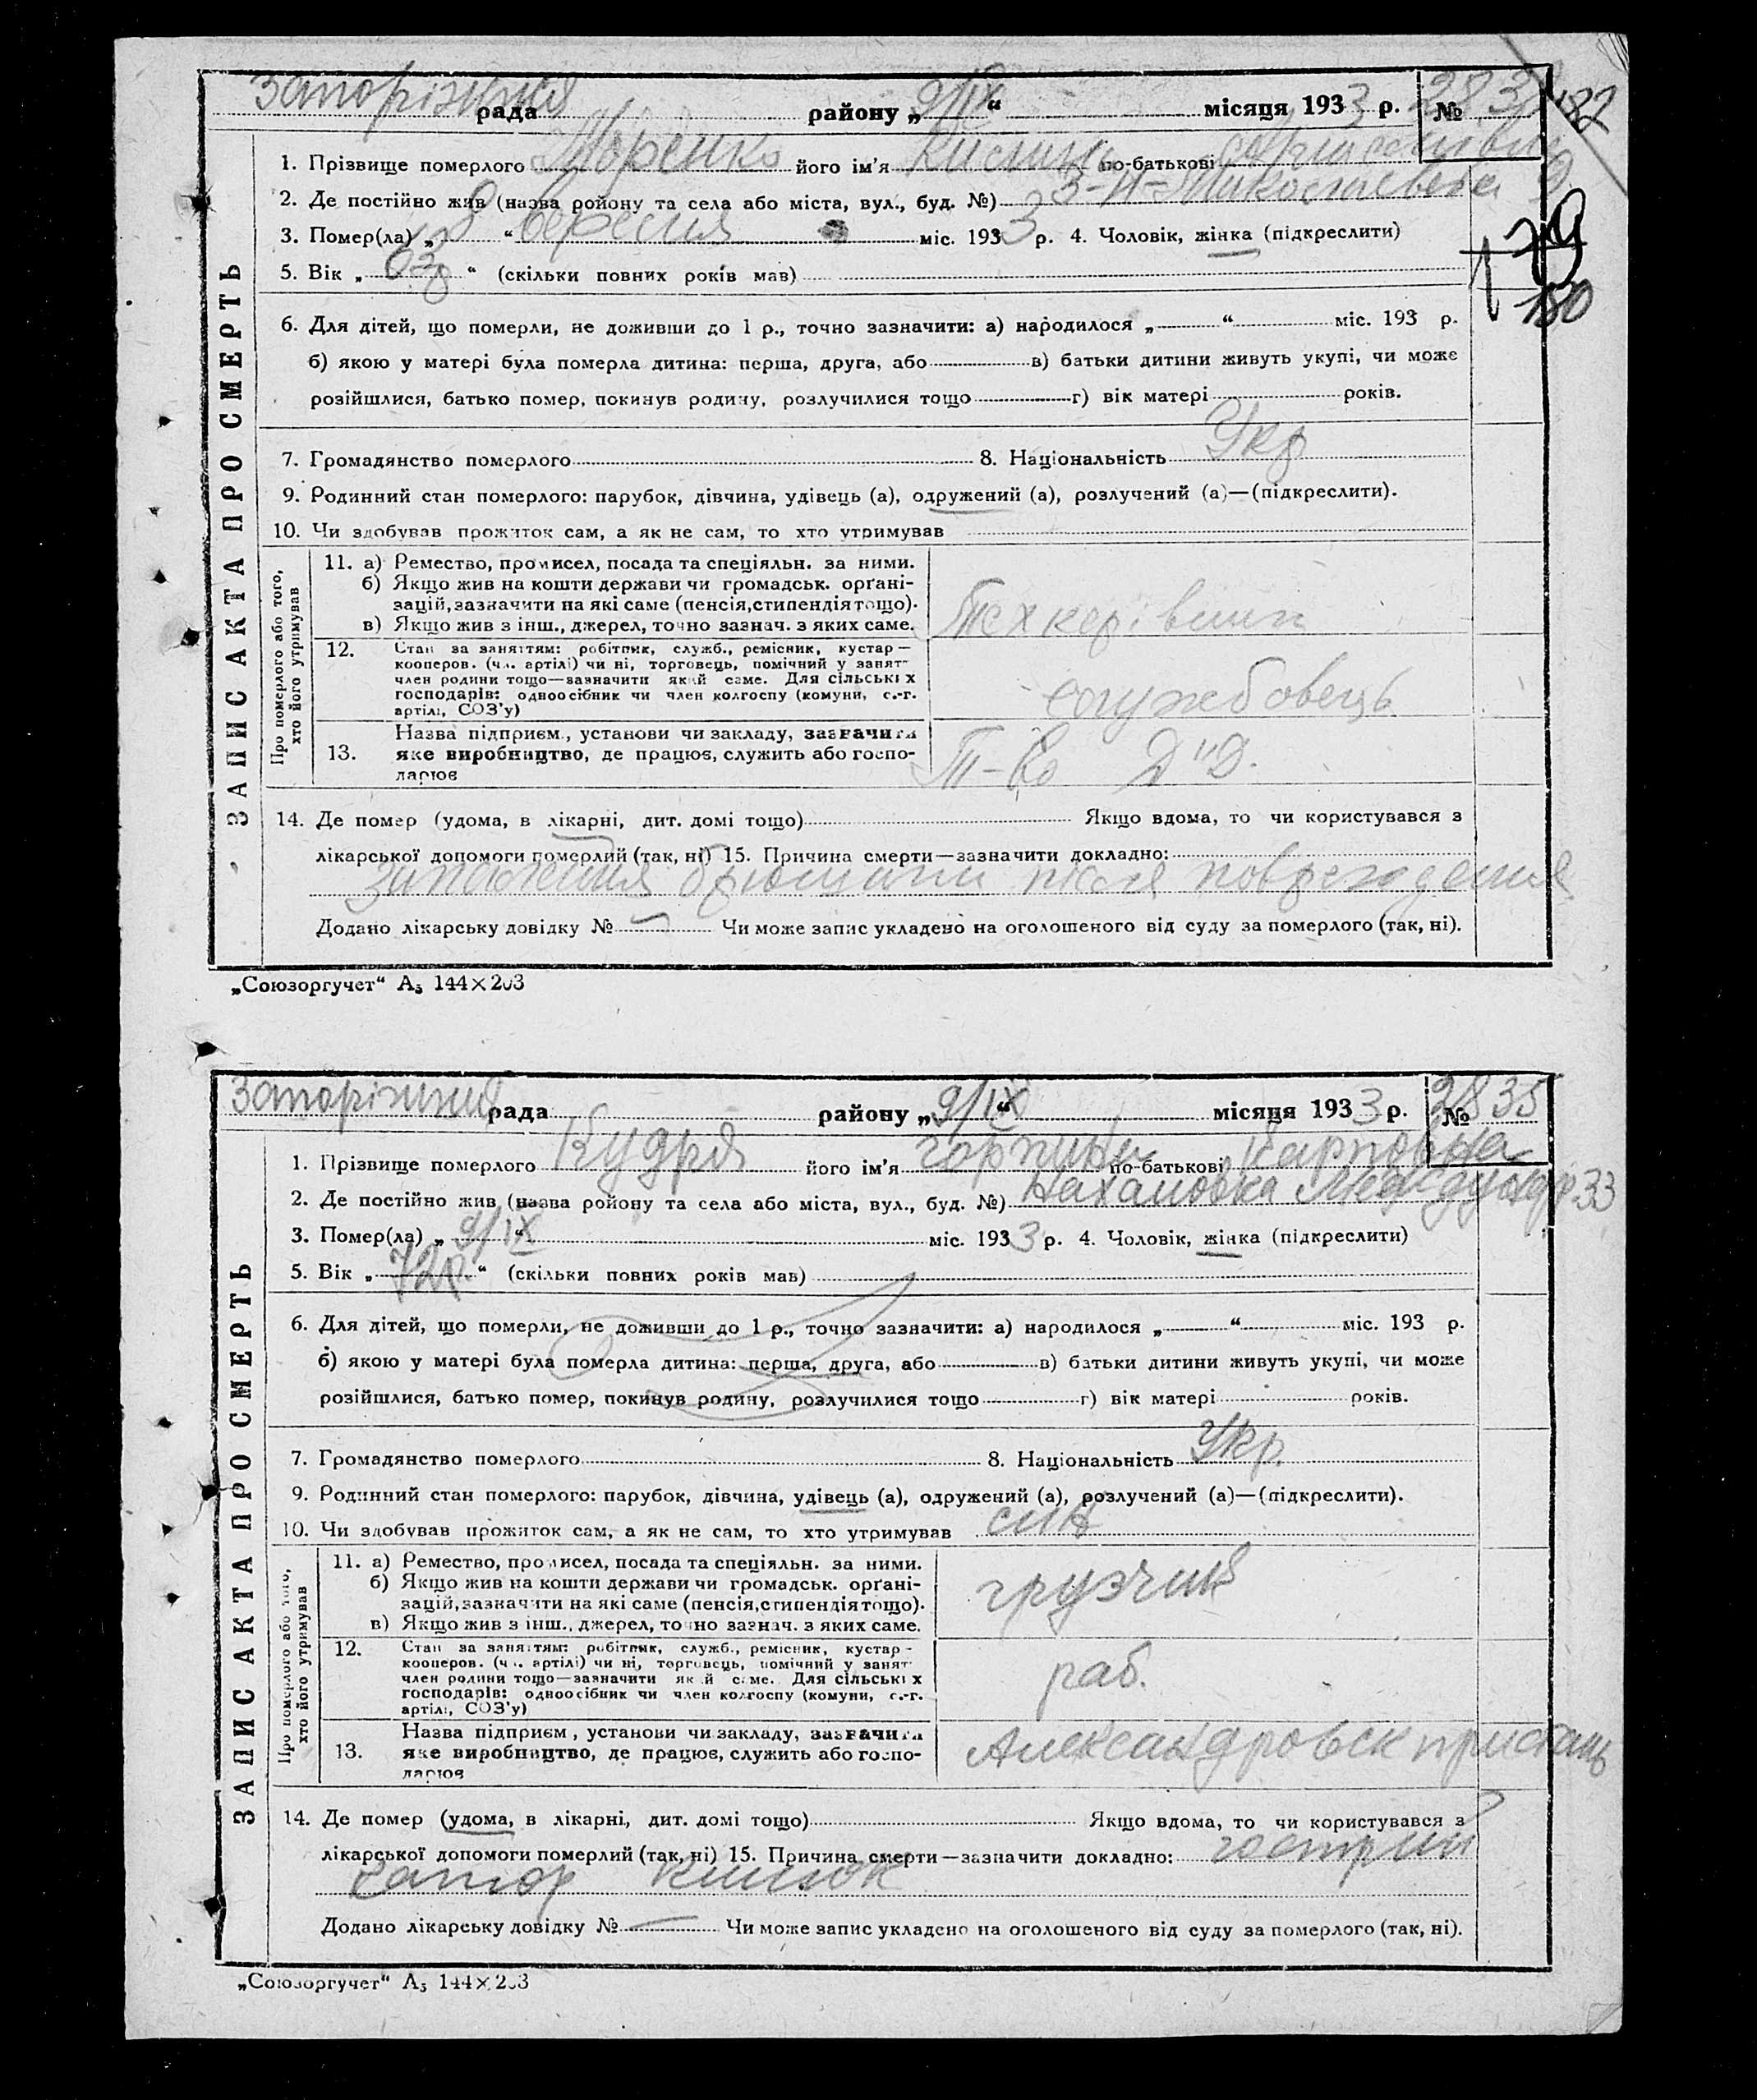 Запоріжжя рада району „ 9/IX “ місяця 1933 р. №
182
1. Прізвище померлого його ім'я по-батькові
2. Де постійно жив (назва ройону та села або міста, вул., буд. №)
3. Помер(ла) „ 8 “ вересня міс. 1933 р. 4. Чоловік, жінка (підкреслити)
79
5. Вік „ “ (скільки повних років мав)
180
6. Для дітей, що померли, не доживши до 1 р., точно зазначити: а) народилося „ “ міс. 193 р.
б) якою у матері була померла дитина: перша, друга, або в) батьки дитини живуть укупі, чи може
розійшлися, батько помер, покинув родину, розлучилися тощо г) вік матері років.
7. Громадянство померлого 8. Національність Укр
9. Родинний стан померлого: парубок, дівчина, удівець (а), одружений (а), розлучений (а)—(підкреслити).
10. Чи здобував прожиток сам, а як не сам, то хто утримував
ЗАПИС АКТА ПРО СМЕРТЬ
Про померлого або того,
хто його утримував
11. а) Ремество, промисел, посада та спеціяльн. за ними.
б) Якщо жив на кошти держави чи громадськ. орґані-
зацій, зазначити на які саме (пенсія, стипендія тощо).
в) Якщо жив з інш., джерел, точно зазнач. з яких саме.
Техкерівник
12. Стан за заняттям: робітник, служб., ремісник, кустар—
кооперов. (чл. артілі) чи ні, торговець, помічний у занят
член родини тощо—зазначити який саме. Для сільських
господарів: одноосібник чи член колгоспу (комуни, с.-г.
артілі, СОЗ'у)
службовець
13. Назва підприєм., установи чи закладу, зазначити
яке виробництво, де працює, служить або госпо-
дарює
Т-во
14. Де помер (удома, в лікарні, дит. домі тощо) Якщо вдома, то чи користувався з
лікарської допомоги померлий (так, ні) 15. Причина смерти—зазначити докладно:
запалення брюшини після повреждения
Додано лікарську довідку № Чи може запис укладено на оголошеного від суду за померлого (так, ні).
„Союзоргучет“ А5 144×203
Запоріжжя рада району „ 9/IX “ місяця 1933 р. № 2835
1. Прізвище померлого Кудря його ім'я Горпина по-батькові Карповна
2. Де постійно жив (назва ройону та села або міста, вул., буд. №) Нахаловка 33
3. Помер(ла) „ 9/IX “ міс. 1933 р. 4. Чоловік, жінка (підкреслити)
5. Вік „ 72р. “ (скільки повних років мав)
6. Для дітей, що померли, не доживши до 1 р., точно зазначити: а) народилося „ “ міс. 193 р.
б) якою у матері була померла дитина: перша, друга, або в) батьки дитини живуть укупі, чи може
розійшлися, батько помер, покинув родину, розлучилися тощо г) вік матері років.
7. Громадянство померлого 8. Національність Укр.
9. Родинний стан померлого: парубок, дівчина, удівець (а), одружений (а), розлучений (а)—(підкреслити).
10. Чи здобував прожиток сам, а як не сам, то хто утримував син
ЗАПИС АКТА ПРО СМЕРТЬ
Про померлого або того,
хто його утримував
11. а) Ремество, промисел, посада та спеціяльн. за ними.
б) Якщо жив на кошти держави чи громадськ. орґані-
зацій, зазначити на які саме (пенсія, стипендія тощо).
в) Якщо жив з інш., джерел, точно зазнач. з яких саме.
грузчик
12. Стан за заняттям: робітник, служб., ремісник, кустар-
кооперов. (чл. артілі) чи ні, торговець, помічний у занят
член родини тощо—зазначити який саме. Для сільських
господарів: одноосібник чи член колгоспу (комуни, с.-г.
артілі, СОЗ'у)
раб.
13. Назва підприєм., установи чи закладу, зазначити
яке виробництво, де працює, служить або госпо-
дарює
Александровск пристань
14. Де помер (удома, в лікарні, дит. домі тощо) Якщо вдома, то чи користувався з
лікарської допомоги померлий (так, ні) 15. Причина смерти—зазначити докладно: гострий
катар кишок
Додано лікарську довідку № — Чи може запис укладено на оголошеного від суду за померлого (так, ні).
„Союзоргучет“ А5 144×203